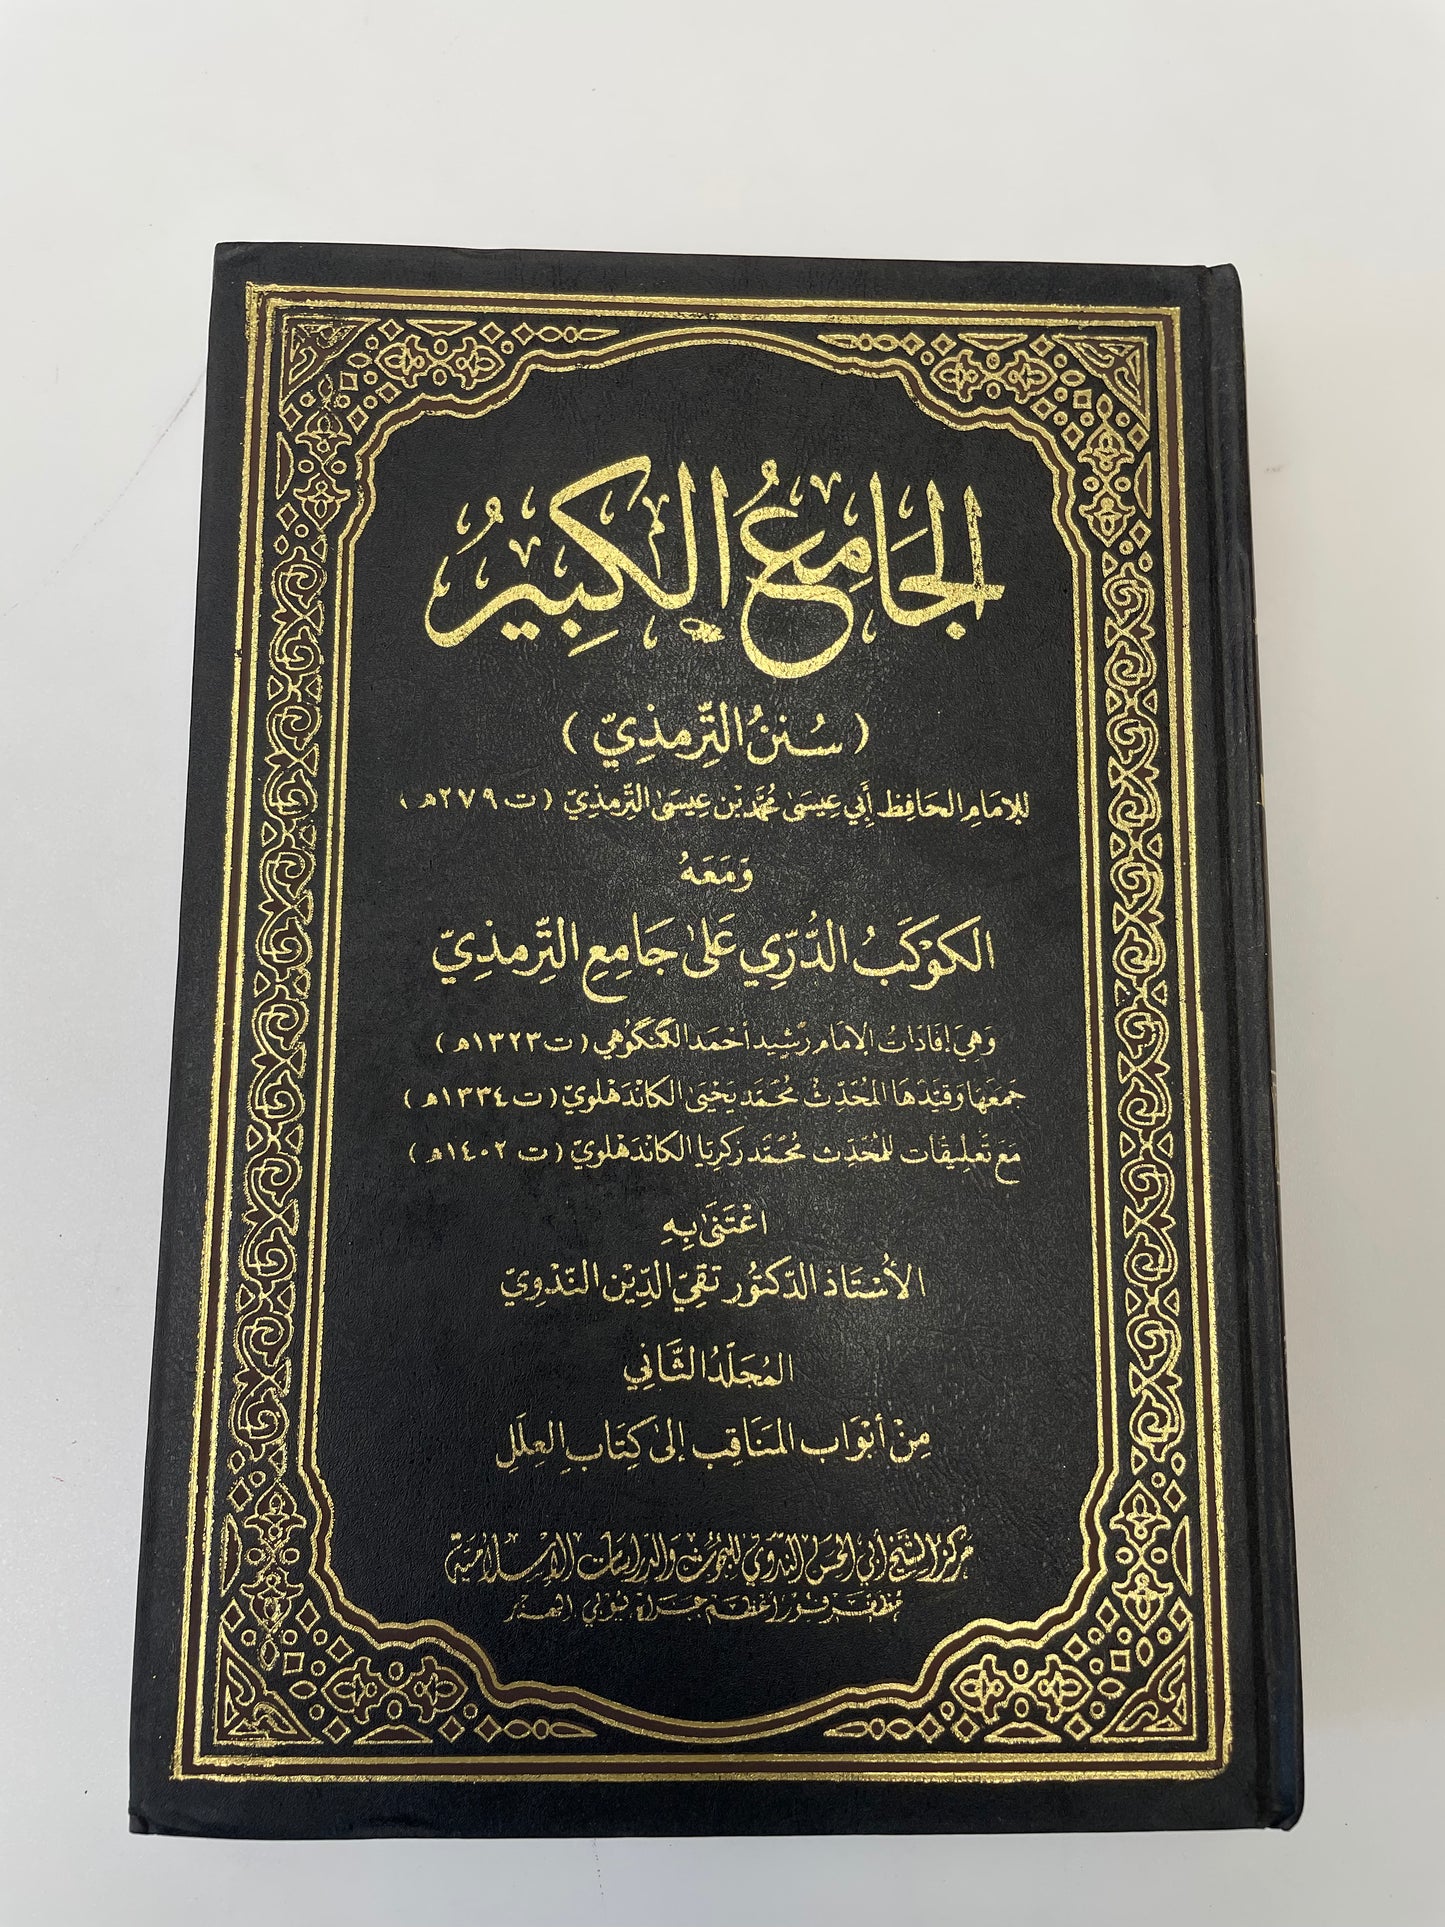 الجَامِعُ الكَبِيرُ
( سُنَنُ التِّرمذِيّ )
للإمَامِ الحَافِظ أَبِي عِيسَىٰ مُحَمَّد بْن عِيسَىٰ التِّرمذِيّ ( ت ٢٧٩ هـ )
وَمَعَهُ
الكَوْكَبُ الدُّرِّي عَلىٰ جَامِعِ التِّرمذِيّ
وَهِيَ إفَادَاتُ الإمَام رَشِيد أحْمَد الگنگوهي ( ت ١٣٢٣ هـ )
جَمَعَهَا وَقَيَّدَهَا المُحَدِّثُ مُحَمَّد يَحْيىٰ الكَانْدَهْلوِيّ ( ت ١٣٣٤ هـ )
مَعَ تَعْلِيقَات للمُحَدِّث مُحَمَّد زَكَرِيّا الكَانْدَهْلوِيّ ( ت ١٤٠٢ هـ )
اعْتَنىٰ بِهِ
الأُسْتَاذ الدّكتوُر تَقِيّ الدِّيْن النَّدْوِيّ
المُجَلّدُ الثَّانِي
مِنْ أبْوَاب المَنَاقِب إلىٰ كِتَابِ العِلَلِ
مركز الشيخ أبي الحسن الندوي للبحوث والدراسات الإسلامية
مُظفر فور أعظم جراه يوبي الهند